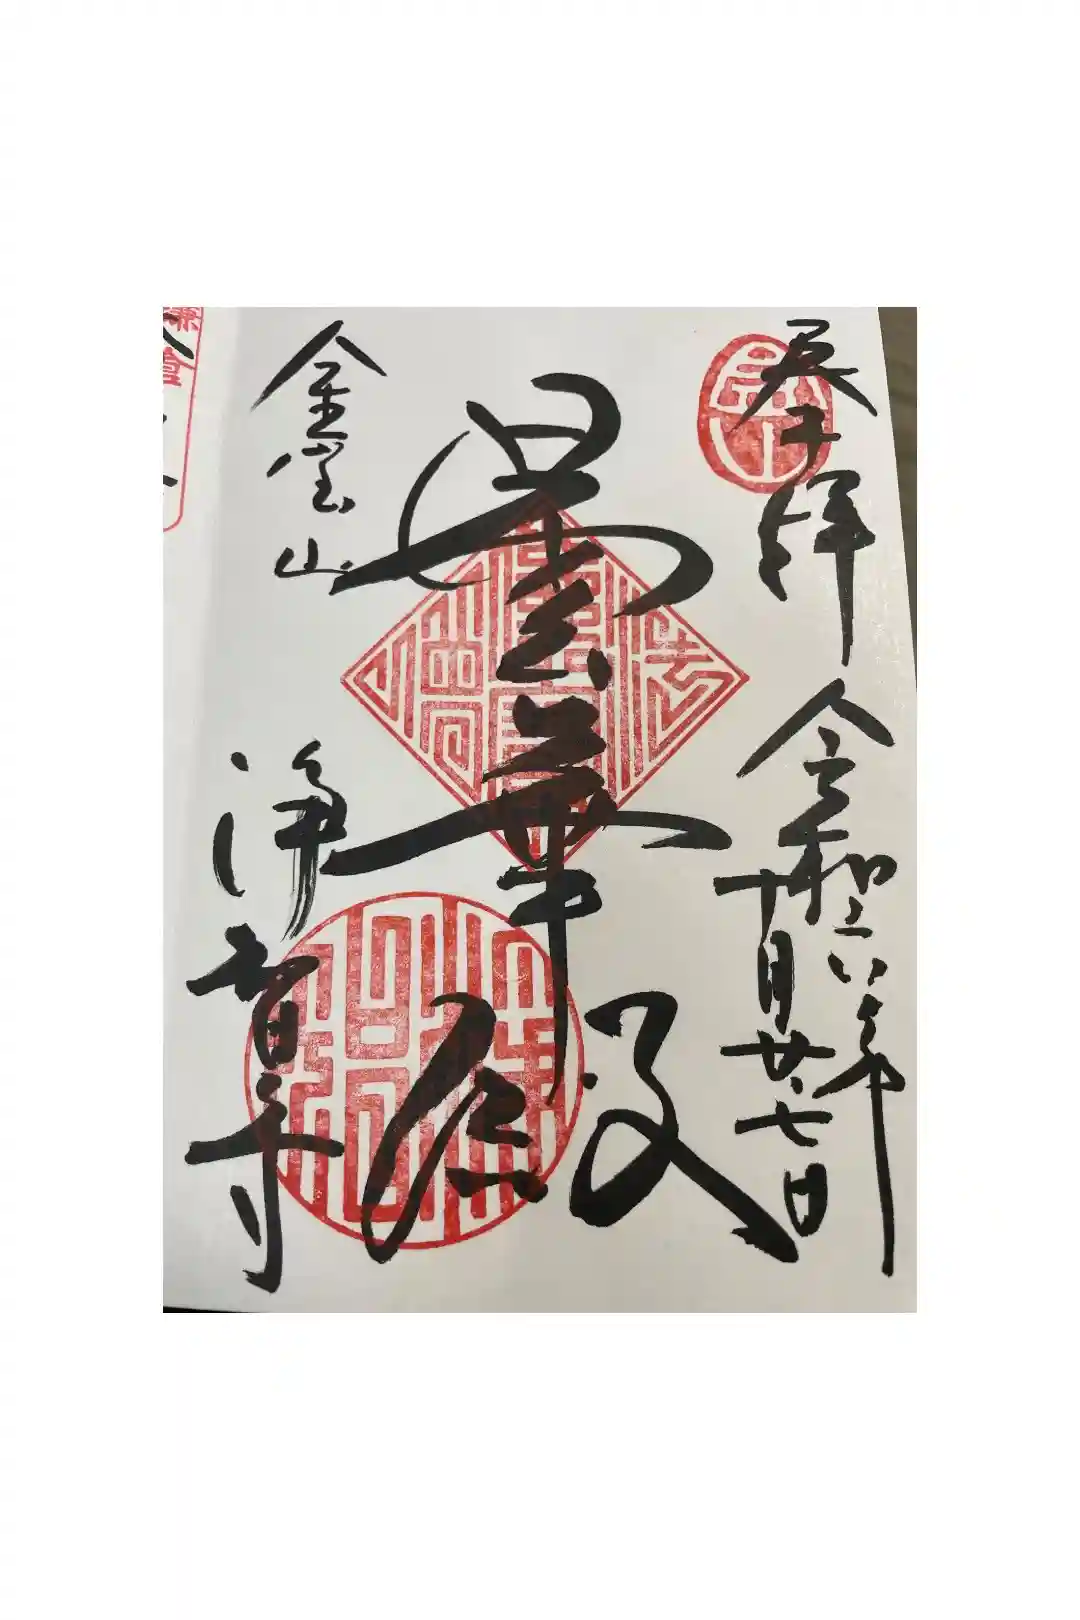 奉拝
令和六年
十月廿七日
曇華殿
金宝山
浄智寺